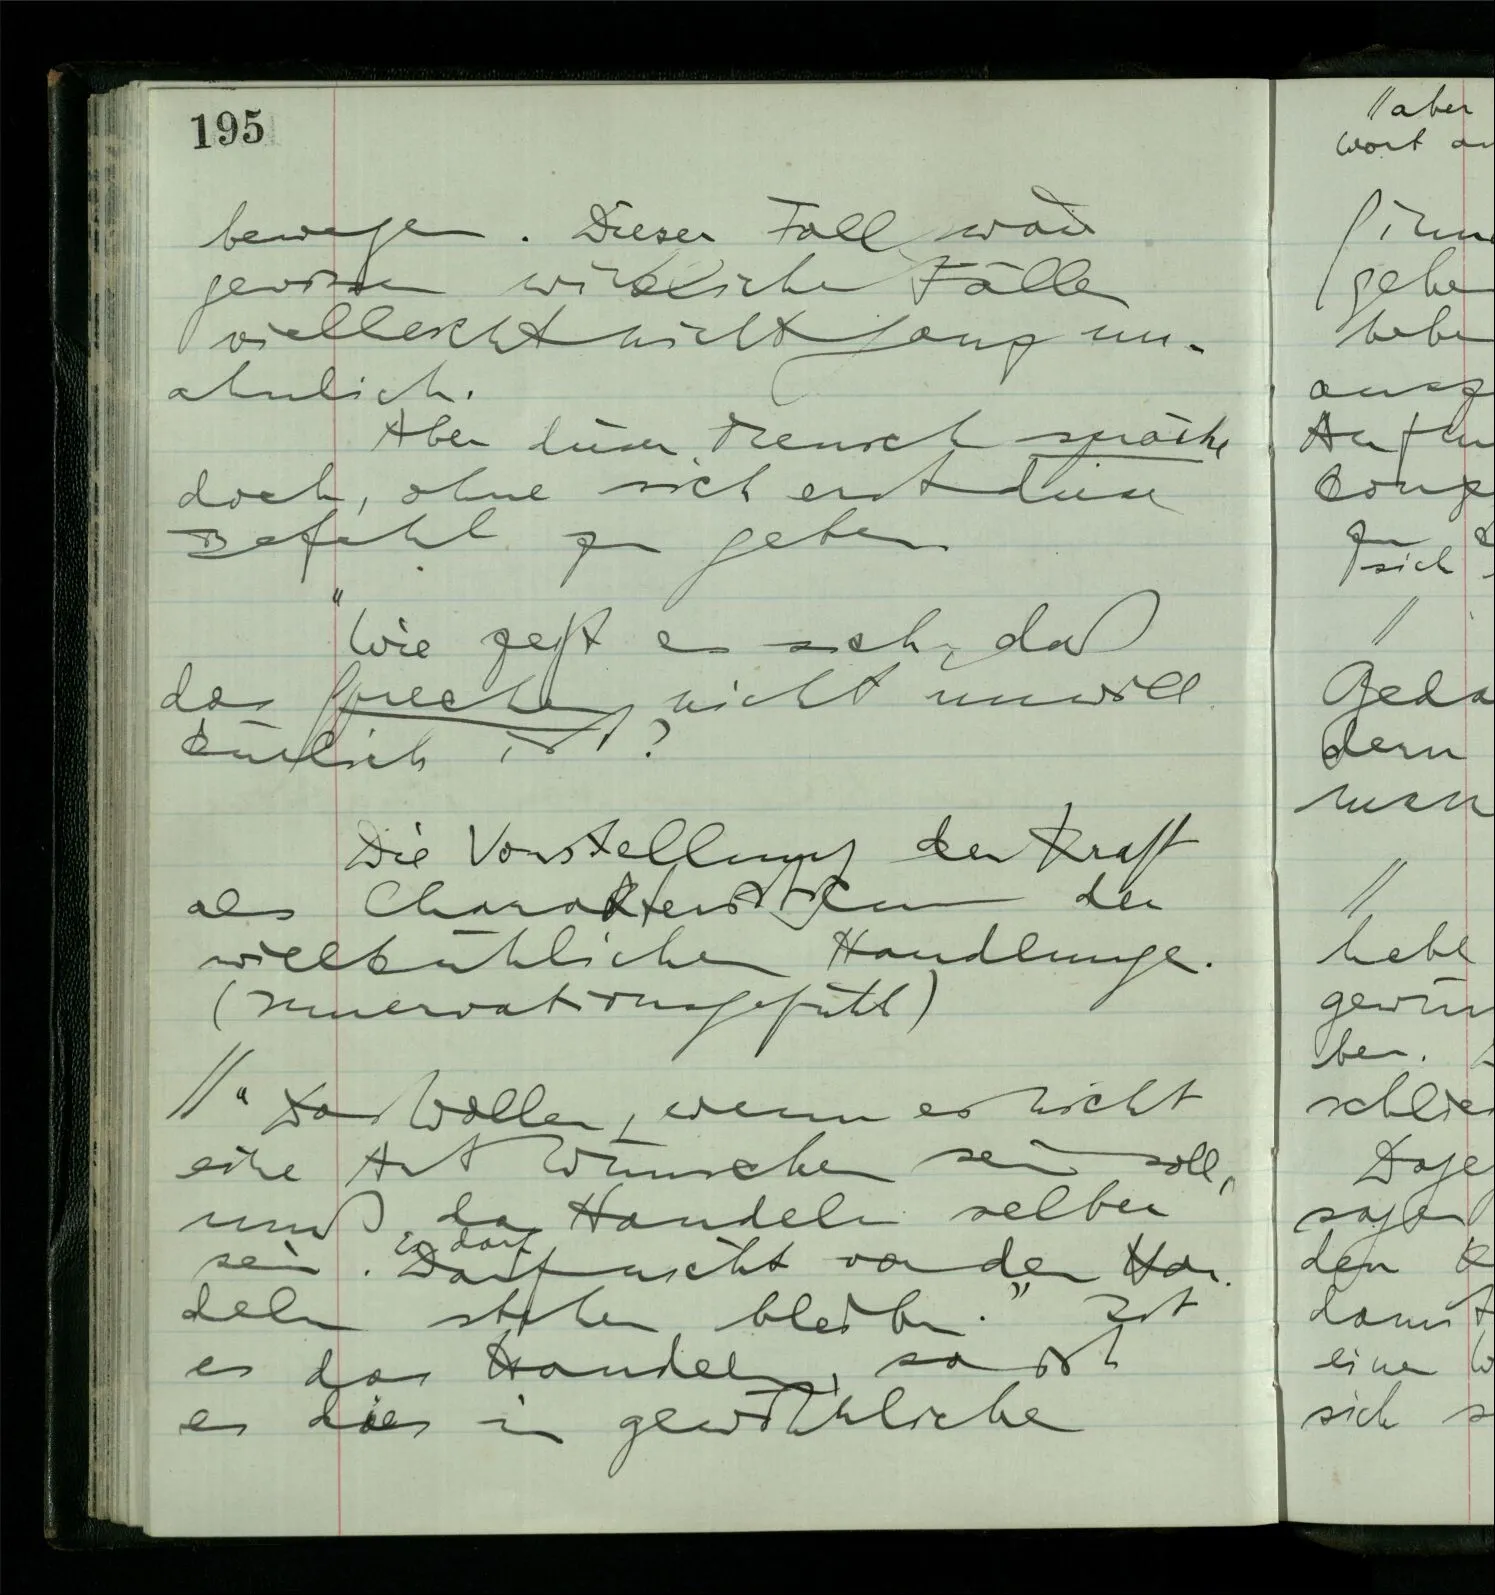 195
bewegen. Dieser Fall wäre
gewissen wirklichen Fällen
vielleicht nicht ganz un-
ähnlich.
Aber dieser Mensch spräche
doch, ohne sich erst diesen
Befehl zu geben
"Wie zeigt es sich, daß
das Sprechen nicht unwill
kürlich ist"?
Die Vorstellung der Kraft
als Charakteristikum der
willkührlichen Handlunge.
(Innervationsgefühl)
// "Das Wollen, wenn es nicht
eine Art Wünschen sein soll,
muß das Handeln selber
sein. Es darf nicht vor dem Han-
deln stehen bleiben." Ist
es das Handeln, so ist
es dies in gewöhnlichen
// aber
Wort
gehe
habe
sich
//
Geda
dern
man
//
hebt
gewün
ben.
schlie
Dage
sagen
den
damit
einen W
sich s